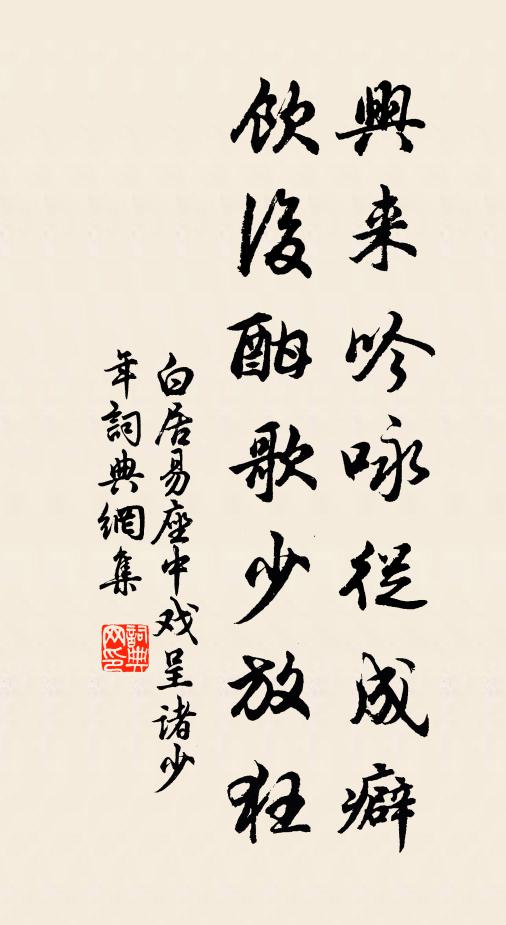 興来吟咏從成癖
飲後酣歌少放狂
白居易座中戏呈諸少
年詞典網集
詞典网印